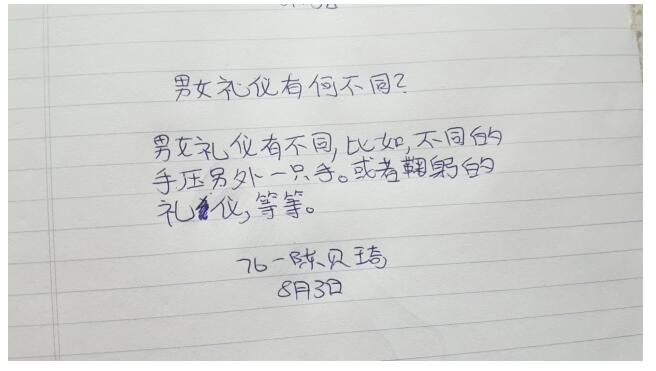 男女礼仪有何不同?
男女礼仪有不同,比如,不同的
手压另外一只手。或者鞠躬的
礼仪,等等。
76-陈贝琦
8月3日